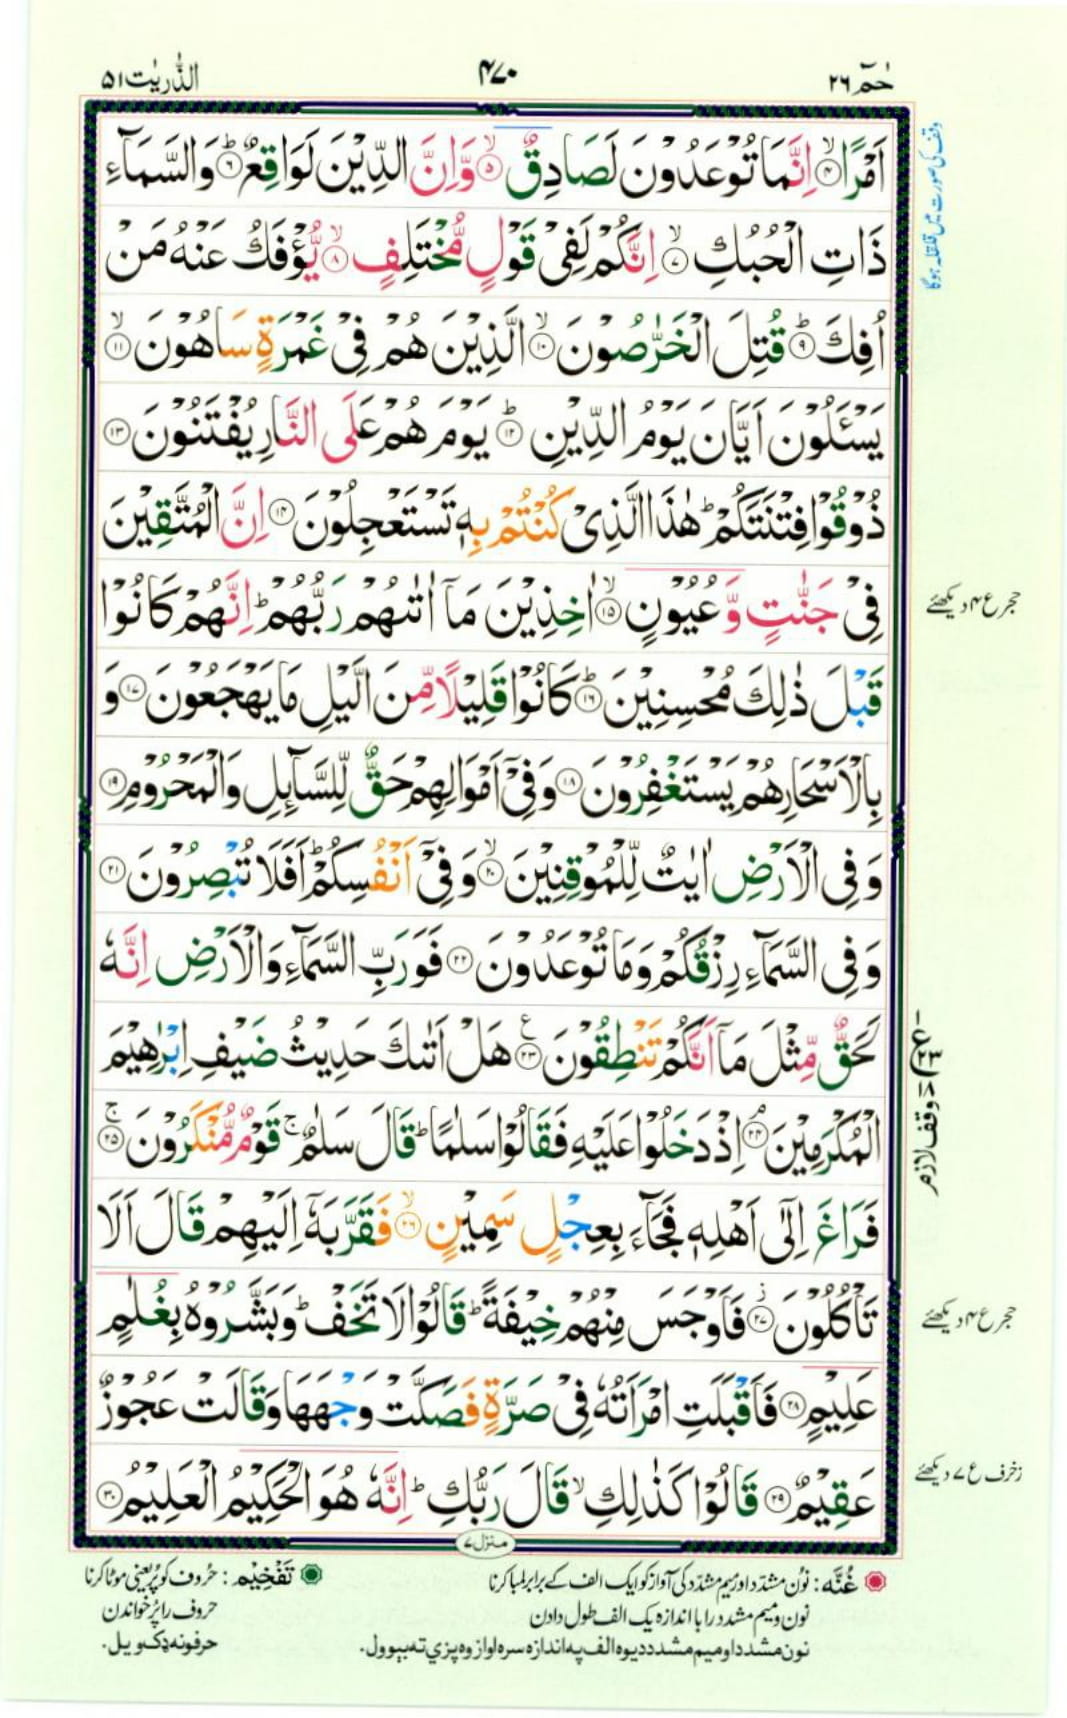 حٰمٓ ٢٦
٤٧٠
الذّٰریٰت ٥١
اَمْرًا ۙ‏﴿۴﴾ اِنَّمَا تُوْعَدُوْنَ لَصَادِقٌ ۙ‏﴿۵﴾ وَّاِنَّ الدِّیْنَ لَوَاقِعٌ ؕ‏﴿۶﴾ وَالسَّمَآءِ
ذَاتِ الْحُبُكِ ۙ‏﴿۷﴾ اِنَّكُمْ لَفِیْ قَوْلٍ مُّخْتَلِفٍ ۙ‏﴿۸﴾ یُّؤْفَكُ عَنْهُ مَنْ
اُفِكَ ؕ‏﴿۹﴾ قُتِلَ الْخَرّٰصُوْنَ ۙ‏﴿۱۰﴾ الَّذِیْنَ هُمْ فِیْ غَمْرَةٍ سَاهُوْنَ ۙ‏﴿۱۱﴾
یَسْـَٔلُوْنَ اَیَّانَ یَوْمُ الدِّیْنِ ؕ‏﴿۱۲﴾ یَوْمَ هُمْ عَلَی النَّارِ یُفْتَنُوْنَ ﴿۱۳﴾
ذُوْقُوْا فِتْنَتَكُمْ ؕ هٰذَا الَّذِیْ كُنْتُمْ بِهٖ تَسْتَعْجِلُوْنَ ﴿۱۴﴾ اِنَّ الْمُتَّقِیْنَ
فِیْ جَنّٰتٍ وَّعُیُوْنٍ ۙ‏﴿۱۵﴾ اٰخِذِیْنَ مَاۤ اٰتٰىهُمْ رَبُّهُمْ ؕ اِنَّهُمْ كَانُوْا
قَبْلَ ذٰلِكَ مُحْسِنِیْنَ ؕ‏﴿۱۶﴾ كَانُوْا قَلِیْلًا مِّنَ الَّیْلِ مَا یَهْجَعُوْنَ ﴿۱۷﴾ وَ
بِالْاَسْحَارِ هُمْ یَسْتَغْفِرُوْنَ ﴿۱۸﴾ وَفِیْۤ اَمْوَالِهِمْ حَقٌّ لِّلسَّآىِٕلِ وَالْمَحْرُوْمِ ﴿۱۹﴾
وَفِی الْاَرْضِ اٰیٰتٌ لِّلْمُوْقِنِیْنَ ۙ‏﴿۲۰﴾ وَفِیْۤ اَنْفُسِكُمْ ؕ اَفَلَا تُبْصِرُوْنَ ﴿۲۱﴾
وَفِی السَّمَآءِ رِزْقُكُمْ وَمَا تُوْعَدُوْنَ ﴿۲۲﴾ فَوَرَبِّ السَّمَآءِ وَالْاَرْضِ اِنَّهٗ
لَحَقٌّ مِّثْلَ مَاۤ اَنَّكُمْ تَنْطِقُوْنَ ﴿۲۳﴾ۧ هَلْ اَتٰىكَ حَدِیْثُ ضَیْفِ اِبْرٰهِیْمَ
الْمُكْرَمِیْنَ ۘ‏﴿۲۴﴾ اِذْ دَخَلُوْا عَلَیْهِ فَقَالُوْا سَلٰمًا ؕ قَالَ سَلٰمٌ ۚ قَوْمٌ مُّنْكَرُوْنَ ۚ‏﴿۲۵﴾
فَرَاغَ اِلٰۤی اَهْلِهٖ فَجَآءَ بِعِجْلٍ سَمِیْنٍ ۙ‏﴿۲۶﴾ فَقَرَّبَهٗۤ اِلَیْهِمْ قَالَ اَلَا
تَاْكُلُوْنَ ؗ‏﴿۲۷﴾ فَاَوْجَسَ مِنْهُمْ خِیْفَةً ؕ قَالُوْا لَا تَخَفْ ؕ وَبَشَّرُوْهُ بِغُلٰمٍ
عَلِیْمٍ ﴿۲۸﴾ فَاَقْبَلَتِ امْرَاَتُهٗ فِیْ صَرَّةٍ فَصَكَّتْ وَجْهَهَا وَقَالَتْ عَجُوْزٌ
عَقِیْمٌ ﴿۲۹﴾ قَالُوْا كَذٰلِكِ ۙ قَالَ رَبُّكِ ؕ اِنَّهٗ هُوَ الْحَكِیْمُ الْعَلِیْمُ ﴿۳۰﴾
وقف کی صورت میں قلقلہ ہوگا
حجر ع ۴ دیکھئے
ع (۲۳) = وقف لازم
حجر ع ۴ دیکھئے
زخرف ع ۷ دیکھئے
منزل ۷
غُنَّه : نون مشدّد اور میم مشدّد کی آواز کو ایک الف کے برابر لمبا کرنا
نون و میم مشدد را با اندازہ یک الف طول دادن
نون مشدد او میم مشدد دیوہ الف پہ اندازہ سرہ اواز وہ پزې تہ بیوول.
تَفْخِیْم : حُروف کو پُر یعنی موٹا کرنا
حروف را پُر خواندن
حرفونه ډک ویل.